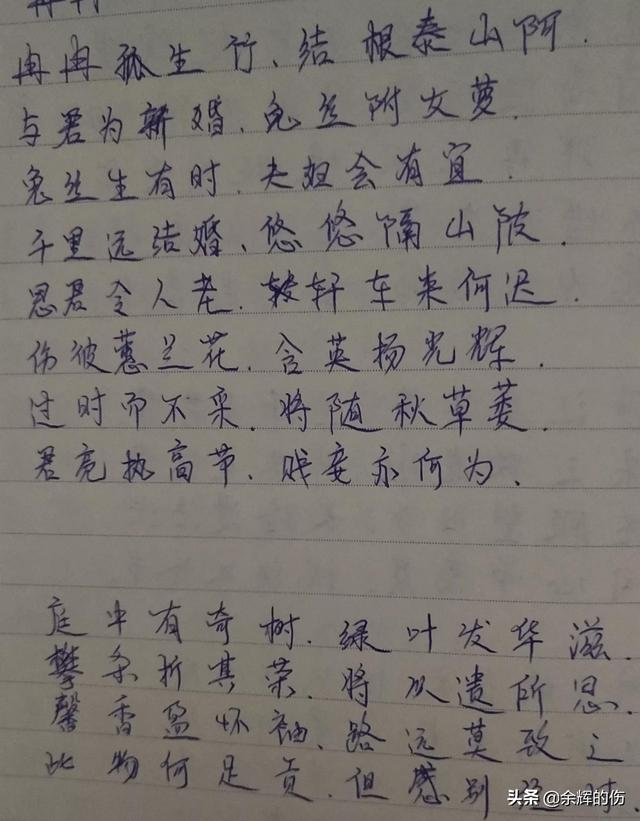 冉冉孤生竹、结根泰山阿.
与君为新婚、兔丝附女萝.
兔丝生有时、夫妇会有宜.
千里远结婚、悠悠隔山陂.
思君令人老、轩车来何迟.
伤彼蕙兰花、含英扬光辉.
过时而不采、将随秋草萎.
君亮执高节、贱妾亦何为、
庭中有奇树、绿叶发华滋.
攀条折其荣、将以遗所思.
馨香盈怀袖、路远莫致之
此物何足贡、但感别经时.
头条 @余辉的伤